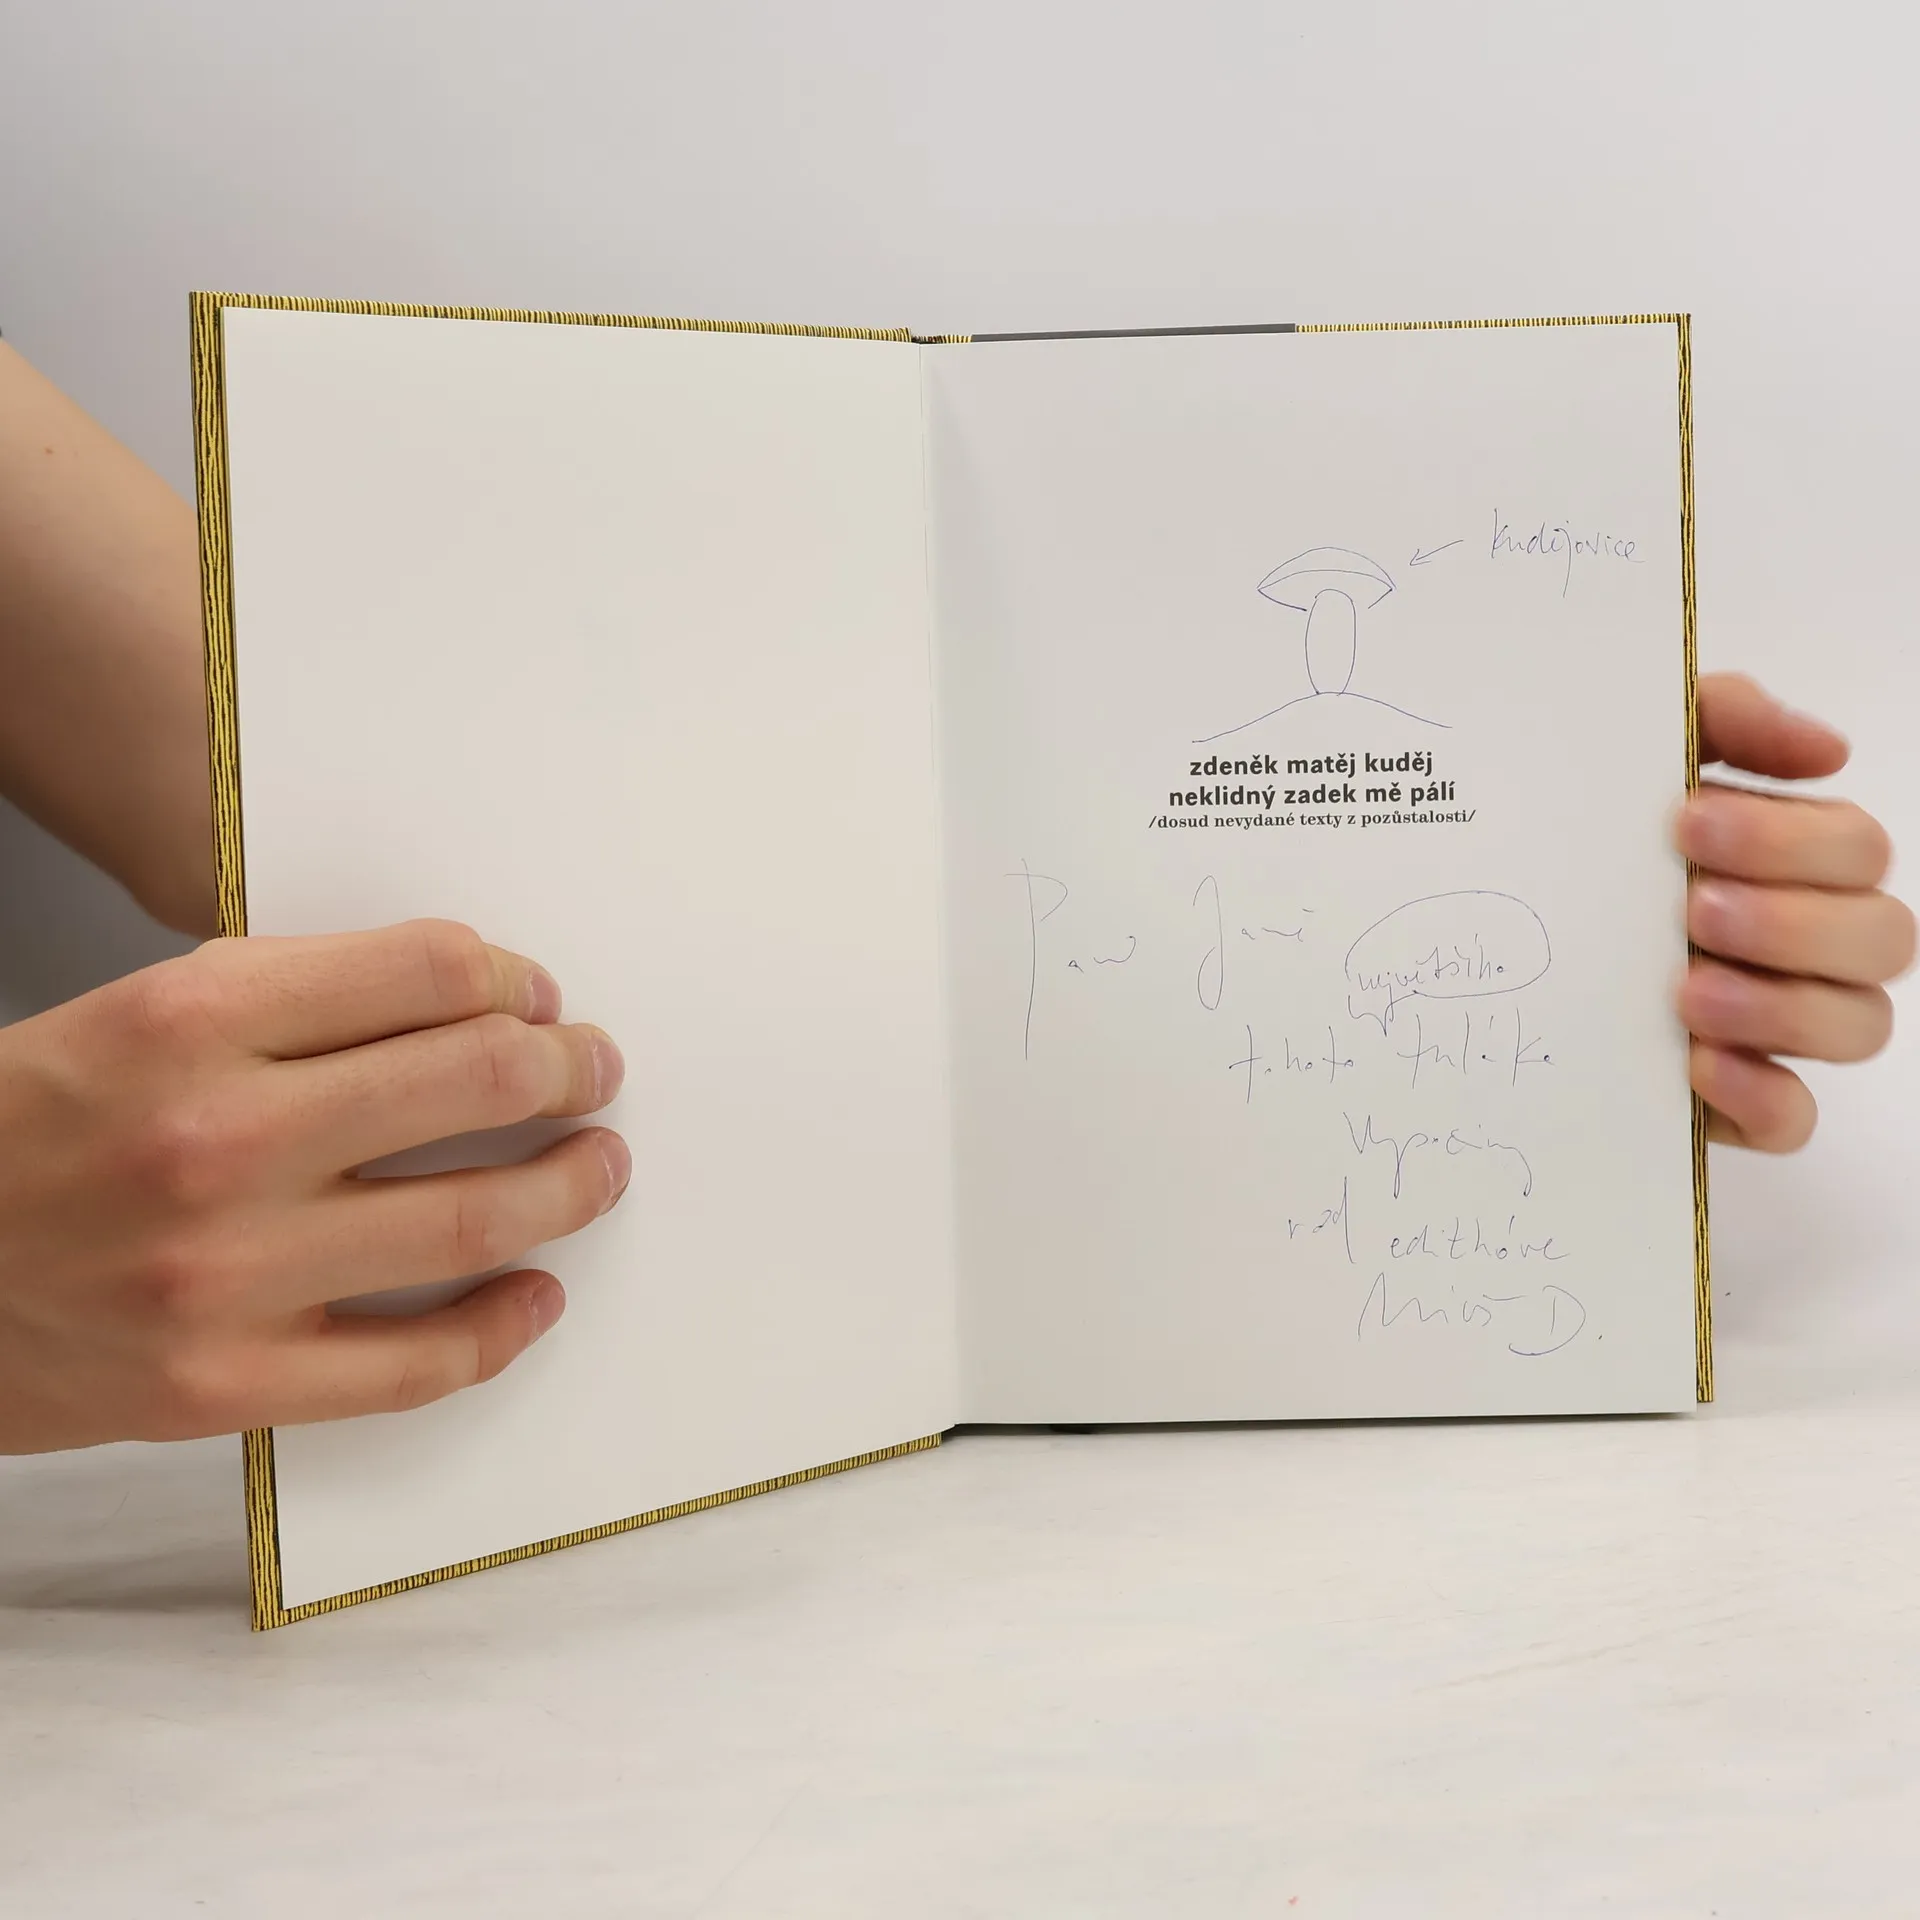 Kudějovice
zdeněk matěj kuděj
neklidný zadek mě pálí
/dosud nevydané texty z pozůstalosti/
Janě
největšího
tohoto tuláka
Vysočiny
rád
Miloš D.